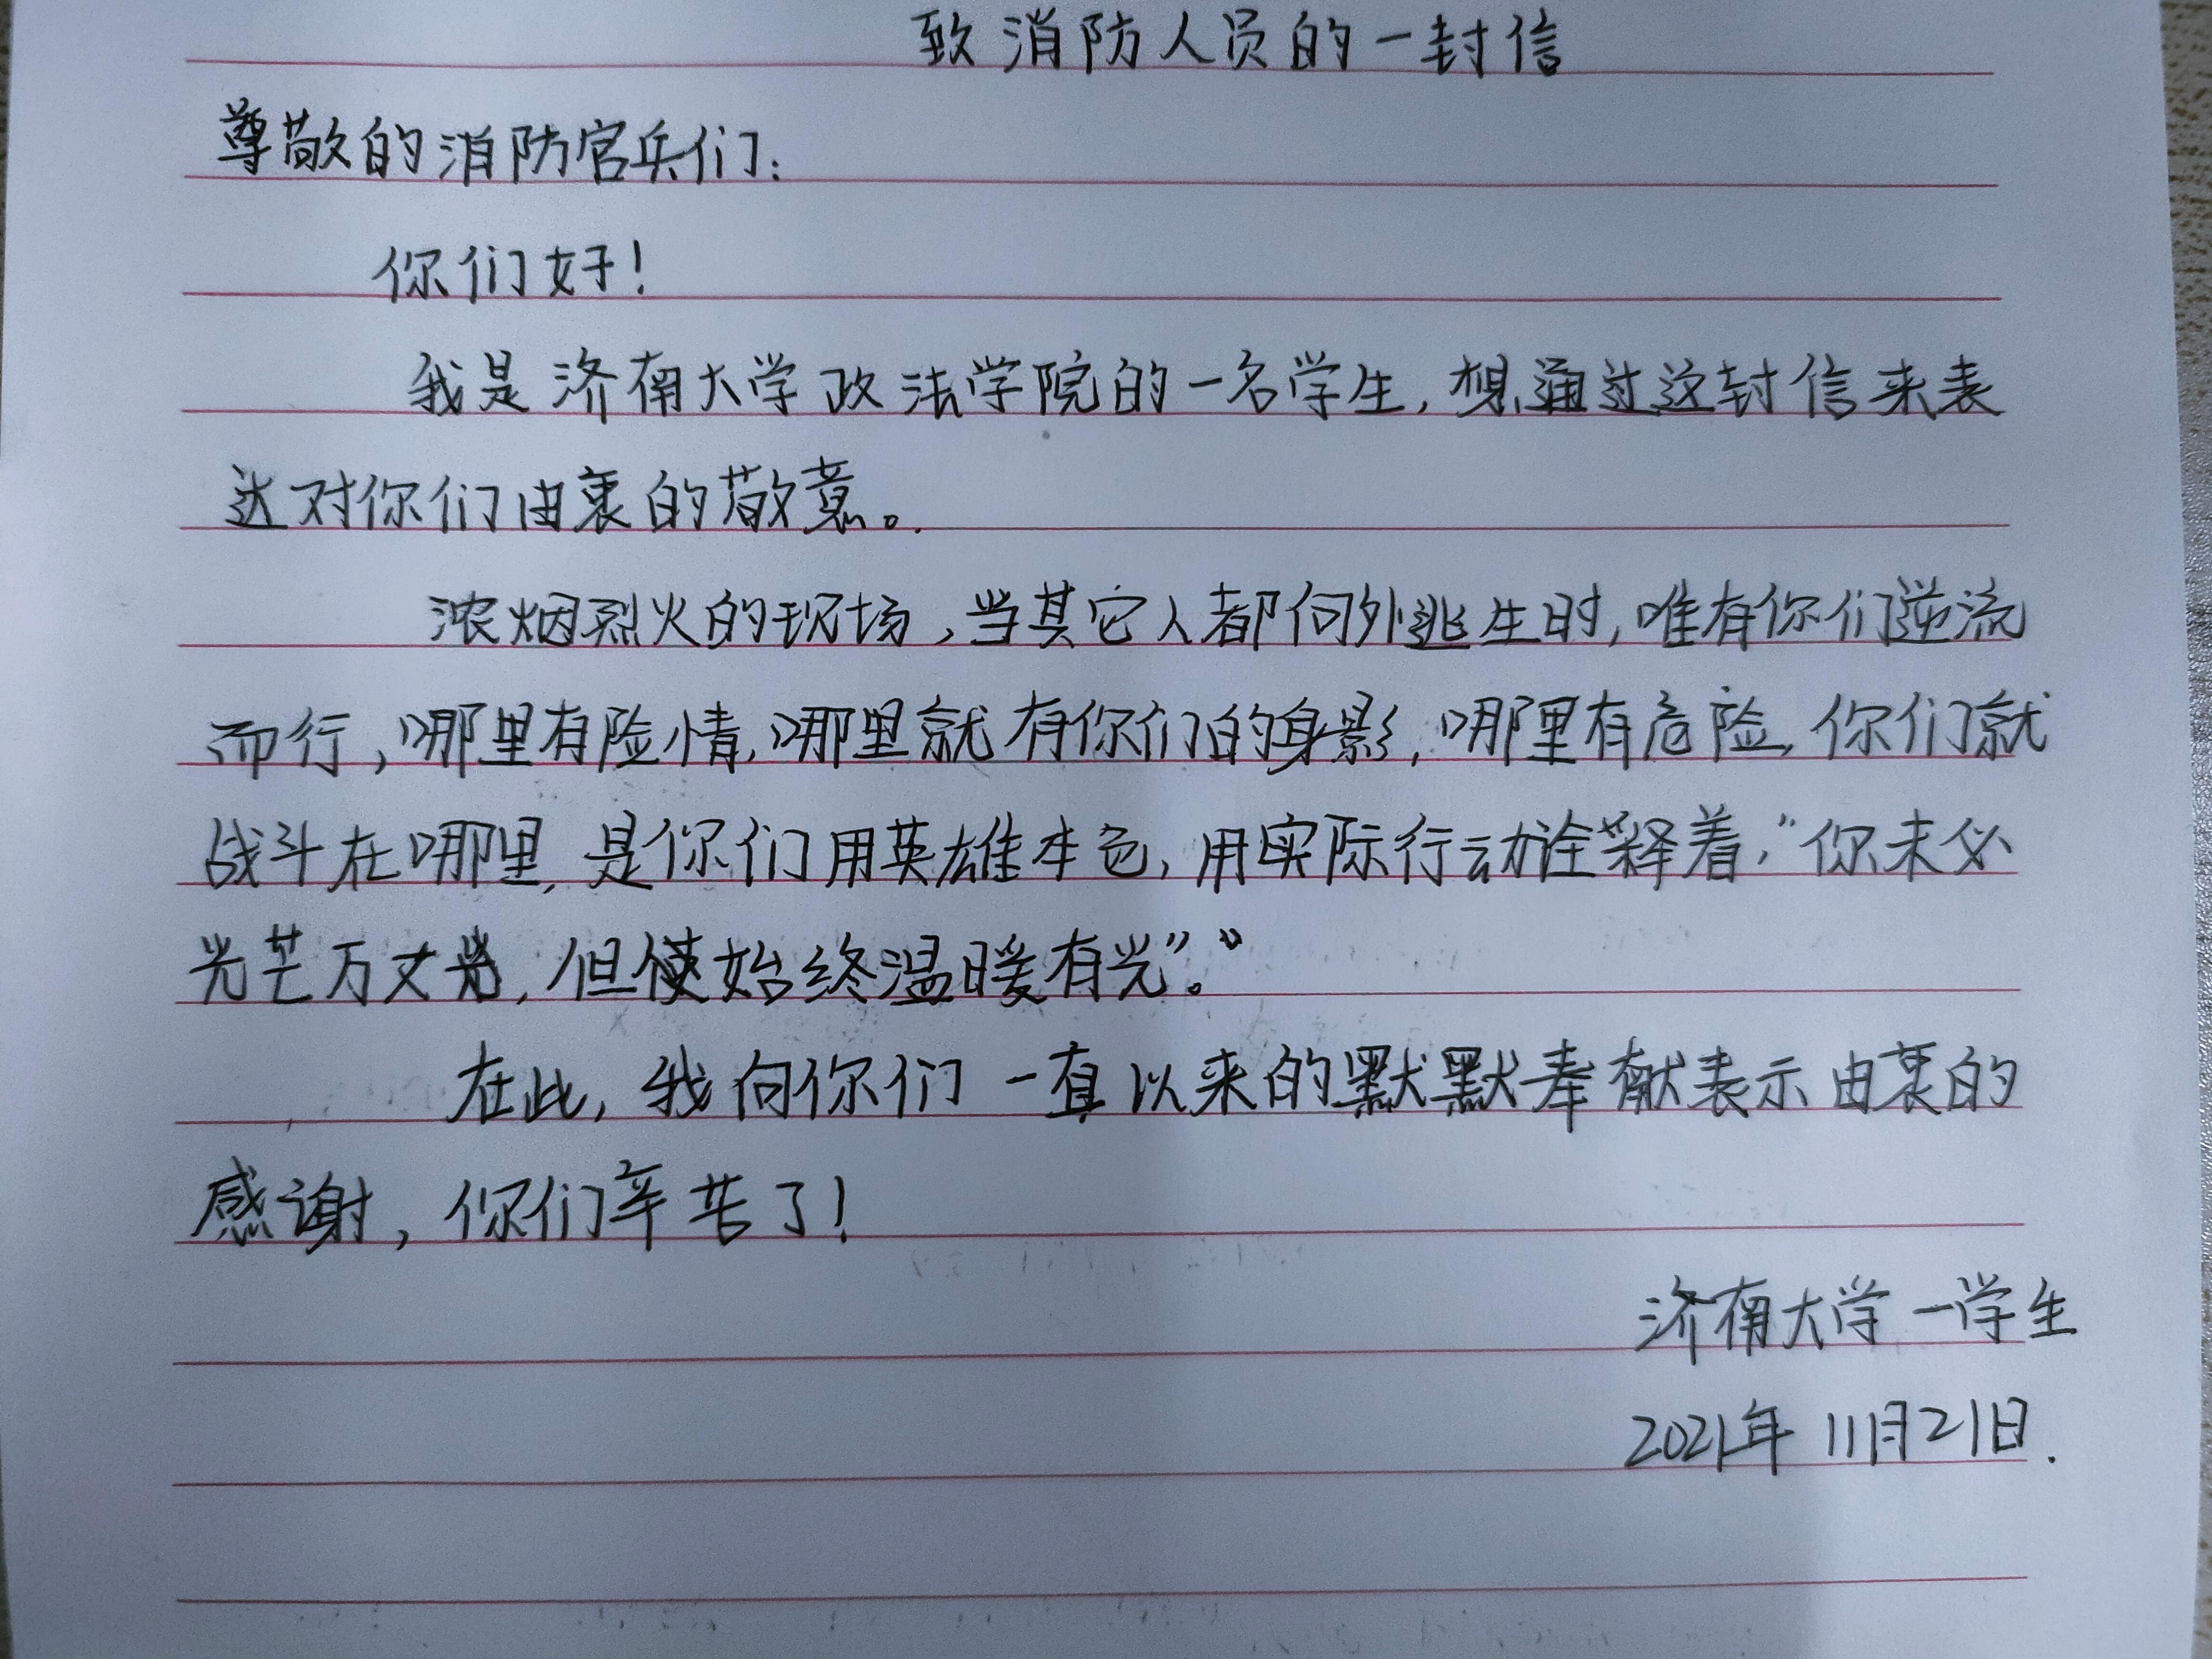 致消防人员的一封信
尊敬的消防官兵们:
你们好!
我是济南大学政法学院的一名学生,想通过这封信来表
达对你们由衷的敬意。
浓烟烈火的现场,当其它人都向外逃生时,唯有你们逆流
而行,哪里有险情,哪里就有你们的身影,哪里有危险,你们就
战斗在哪里,是你们用英雄本色,用实际行动诠释着,“你未必
光芒万丈,但使始终温暖有光”。”
在此,我向你们一直以来的默默奉献表示由衷的
感谢,你们辛苦了!
济南大学一学生
2021年11月21日.